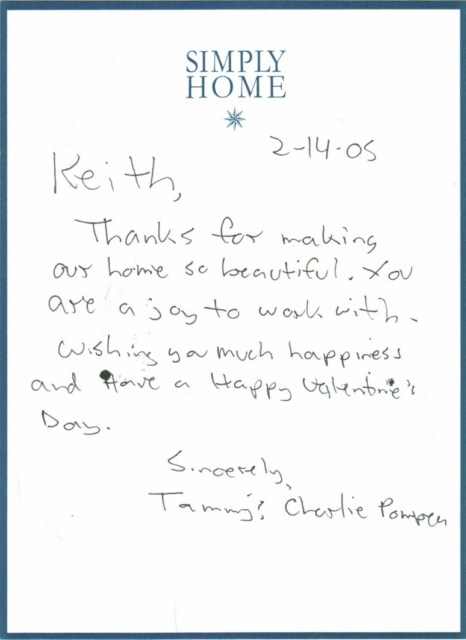 SIMPLY
HOME
2-14-05
Keith,
Thanks for making
our home so beautiful. You
are a joy to work with.
Wishing you much happiness
and Have a Happy Valentine's
Day.
Sincerely,
Tammy & Charlie